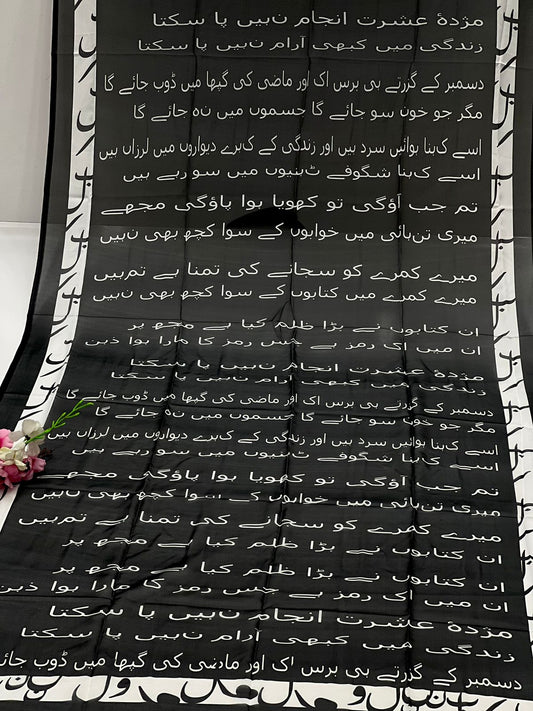 مژدۂ عشرت انجام نہیں پا سکتا
زندگی میں کبھی آرام نہیں پا سکتا
دسمبر کے گزرتے ہی برس اک اور ماضی کی گپھا میں ڈوب جائے گا
مگر جو خون سو جائے گا جسموں میں نہ جائے گا
اسے کہنا ہوائیں سرد ہیں اور زندگی کے کہرے دیواروں میں لرزاں ہیں
اسے کہنا شگوفے ٹہنیوں میں سو رہے ہیں
تم جب آؤگی تو کھویا ہوا پاؤگی مجھے
میری تنہائی میں خوابوں کے سوا کچھ بھی نہیں
میرے کمرے کو سجانے کی تمنا ہے تمہیں
میرے کمرے میں کتابوں کے سوا کچھ بھی نہیں
ان کتابوں نے بڑا ظلم کیا ہے مجھ پر
ان میں اک رمز ہے جس رمز کا مارا ہوا ذہن
مژدۂ عشرت انجام نہیں پا سکتا
زندگی میں کبھی آرام نہیں پا سکتا
دسمبر کے گزرتے ہی برس اک اور ماضی کی گپھا میں ڈوب جائے گا
مگر جو خون سو جائے گا جسموں میں نہ جائے گا
اسے کہنا ہوائیں سرد ہیں اور زندگی کے کہرے دیواروں میں لرزاں ہیں
اسے کہنا شگوفے ٹہنیوں میں سو رہے ہیں
تم جب آؤگی تو کھویا ہوا پاؤگی مجھے
میری تنہائی میں خوابوں کے سوا کچھ بھی نہیں
میرے کمرے کو سجانے کی تمنا ہے تمہیں
ان کتابوں نے بڑا ظلم کیا ہے مجھ پر
ان کتابوں نے بڑا ظلم کیا ہے مجھ پر
ان میں اک رمز ہے جس رمز کا مارا ہوا ذہن
مژدۂ عشرت انجام نہیں پا سکتا
زندگی میں کبھی آرام نہیں پا سکتا
دسمبر کے گزرتے ہی برس اک اور ماضی کی گپھا میں ڈوب جائے